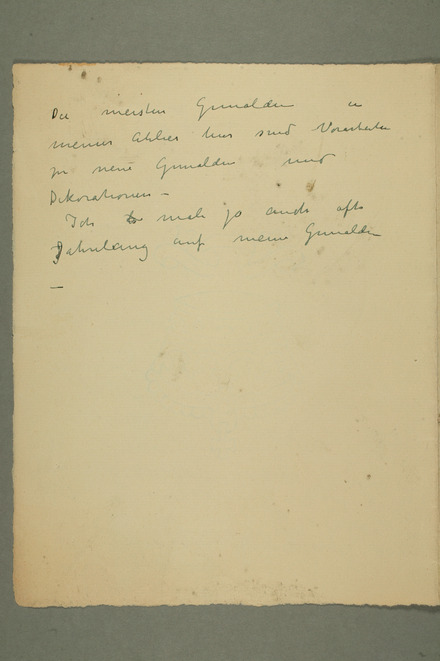 Die meisten Gemälden in
meines Atelier hier sind Vorarbeiten
zu neue Gemälden und
Dekorationen –
Ich male jo auch oft
Jahrelang auf meine Gemälden
–